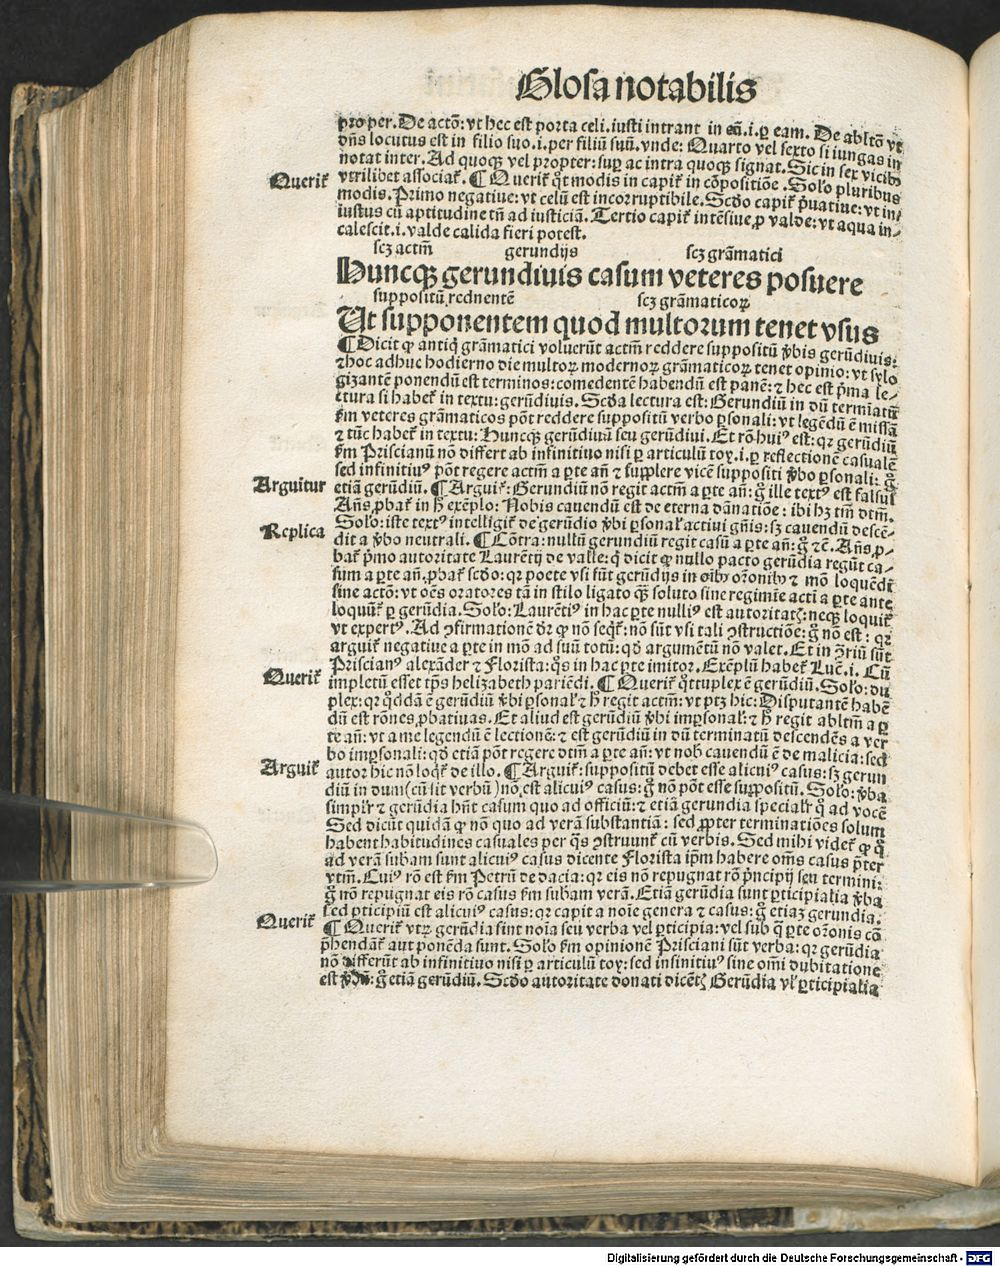 Glosa notabilis
pro per. De actō: vt hec est porta celi. iusti intrant in eā .i. ꝑ eam. De abltō vt
dn̄s locutus est in filio suo .i. per filiū suū. vnde: Quarto vel sexto si iungas in
notat inter. Ad quoqꝫ vel propter: suꝑ ac intra quoqꝫ signat. Sic in sex vicibꝰ
Querit̄
vtrilibet associat̄. ¶ Querit̄ q̊t modis in capit̄ in cōpositiōe. Solo pluribus
modis. Primo negatiue: vt celū est incorruptibile. Scd̄o capit̄ p̄uatiue: vt in/
iustus cū aptitudine tn̄ ad iusticiā. Tertio capit̄ intēsiue ꝓ valde: vt aqua in-
calescit .i. valde calida fieri potest.
scꝫ actm̄ gerundijs scꝫ grāmatici
Huncqꝫ gerundiuis casum veteres posuere
suppositū rednentē scꝫ grāmaticoꝝ
Ut supponentem quod multorum tenet vsus
¶ Dicit ꝙ antiq̇ grāmatici voluerūt actm̄ reddere suppositū v̄bis gerūdiuis:
⁊ hoc adhuc hodierno die multoꝝ modernoꝝ grāmaticoꝝ tenet opinio: vt sylo
gizantē ponendū est terminos: comedentē habendū est panē: ⁊ hec est p̄ma le-
ctura si habet̄ in textu: gerūdiuis. Scd̄a lectura est: Gerundiū in dū terminatū
fm̄ veteres grāmaticos pōt reddere suppositū verbo ꝑsonali: vt legēdū ē missā
⁊ tūc habet̄ in textu: Huncqꝫ gerūdiuū seu gerūdiui. Et rō huiꝰ est: qꝛ gerūdiū
fm̄ Priscianū nō differt ab infinitiuo nisi ꝑ articulū toꝝ .i. ꝑ reflectionē casualē
sed infinitiuꝰ pōt regere actm̄ a ꝑte añ ⁊ supplere vicē suppositi v̄bo ꝑsonali: g̊
Arguitur
etiā gerūdiū. ¶ Arguit̄: Gerundiū nō regit actm̄ a ꝑte añ: g̊ ille textꝰ est falsus
Añs ꝓbat̄ in h̄ exēplo: Nobis cauendū est de eterna dānatiōe: ibi hꝫ tm̄ dtm̄.
Replica
Solo: iste textꝰ intelligit̄ de gerūdio v̄bi ꝑsonal̄ actiui gn̄is: sꝫ cauendū descē-
dit a v̄bo neutrali. ¶ Cōtra: nullū gerundiū regit casū a ꝑte añ: g̊ ⁊c̄. Añs ꝓ-
bat̄ p̄mo autoritate Laurētij de valle: q̇ dicit ꝙ nullo pacto gerūdia regūt ca-
sum a ꝑte añ. ꝓbat̄ scd̄o: qꝛ poete vsi sūt gerūdijs in oībꝫ orōnibꝫ ⁊ mō loquēdi
sine actm̄: vt oēs oratores tā in stilo ligato qꝫ soluto sine regimīe acti a ꝑte ante
loquūt̄ ꝑ gerūdia. Solo: Laurētiꝰ in hac ꝑte nulliꝰ est autoritatꝭ: neqꝫ loquit̄
vt expertꝰ. Ad ꝯfirmationē dr̄ ꝙ nō seqt̄: nō sūt vsi tali ꝯstructiōe: g̊ nō est: qꝛ
arguit̄ negatiue a ꝑte in mō ad suū totū: qd̄ argumētū nō valet. Et in ꝯriū sūt
Priscianꝰ alexāder ⁊ Florista: q̊s in hac ꝑte imitor. Exēplū habet̄ Luc̄ .i. Cū
Querit̄
impletū esset tp̄s helizabeth pariēdi. ¶ Querit̄ q̊tuplex ē gerūdiū. Solo: du
plex: qꝛ q̊ddā ē gerūdiū v̄bi ꝑsonal̄ ⁊ h̄ regit actm̄: vt ptꝫ hic: Disputantē habē
dū est rōnes ꝓbatiuas. Et aliud est gerūdiū v̄bi imꝑsonal̄: ⁊ h̄ regit abltm̄ a ꝑ
te añ: vt a me legendū ē lectionē: ⁊ est gerūdiū in dū terminatū descendēs a ver
bo imꝑsonali: qd̄ etiā pōt regere dtm̄ a ꝑte añ: vt nob̄ cauendū ē de malicia: sed
Arguit̄
autor hic nō loqt̄ de illo. ¶ Arguit̄: suppositū debet esse alicuiꝰ casus: sꝫ gerun
diū in dum (cū sit verbū) nō est alicuiꝰ casus: g̊ nō pōt esse suppositū. Solo: v̄ba
simplr̄ ⁊ gerūdia hn̄t casum quo ad officiū: ⁊ etiā gerundia specialr̄ q̊ ad vocē
Sed dicūt quidā ꝙ nō quo ad verā substantiā: sed ꝓpter terminatiōes solum
habent habitudines casuales per q̊s ꝯstruunt̄ cū verbis. Sed mihi videt̄ ꝙ q̊
ad verā subam sunt alicuiꝰ casus dicente Florista ip̄m habere om̄s casus p̄ter
vtm̄. Cuiꝰ rō est fm̄ Petrū de dacia: qꝛ eis nō repugnat rō p̄ncipij seu termini:
g̊ nō repugnat eis rō casus fm̄ subam verā. Etiā gerūdia sunt ꝑticipialia v̄ba
sed ꝑticipiū est alicuiꝰ casus: qꝛ capit a noīe genera ⁊ casus: g̊ etiaꝫ gerundia.
Querit̄
¶ Querit̄ vtꝝ gerūdia sint noīa seu verba vel ꝑticipia: vel sub q̄ ꝑte orōnis cō
p̄hendāt̄ aut ponēda sunt. Solo fm̄ opinionē Prisciani sūt verba: qꝛ gerūdia
nō differūt ab infinitiuo nisi ꝑ articulū toꝝ: sed infinitiuꝰ sine om̄i dubitatione
est v̄bū: g̊ etiā gerūdiū. Scd̄o autoritate donati dicētꝭ Gerūdia vl̄ ꝑticipialia
Digitalisierung gefördert durch die Deutsche Forschungsgemeinschaft - DFG